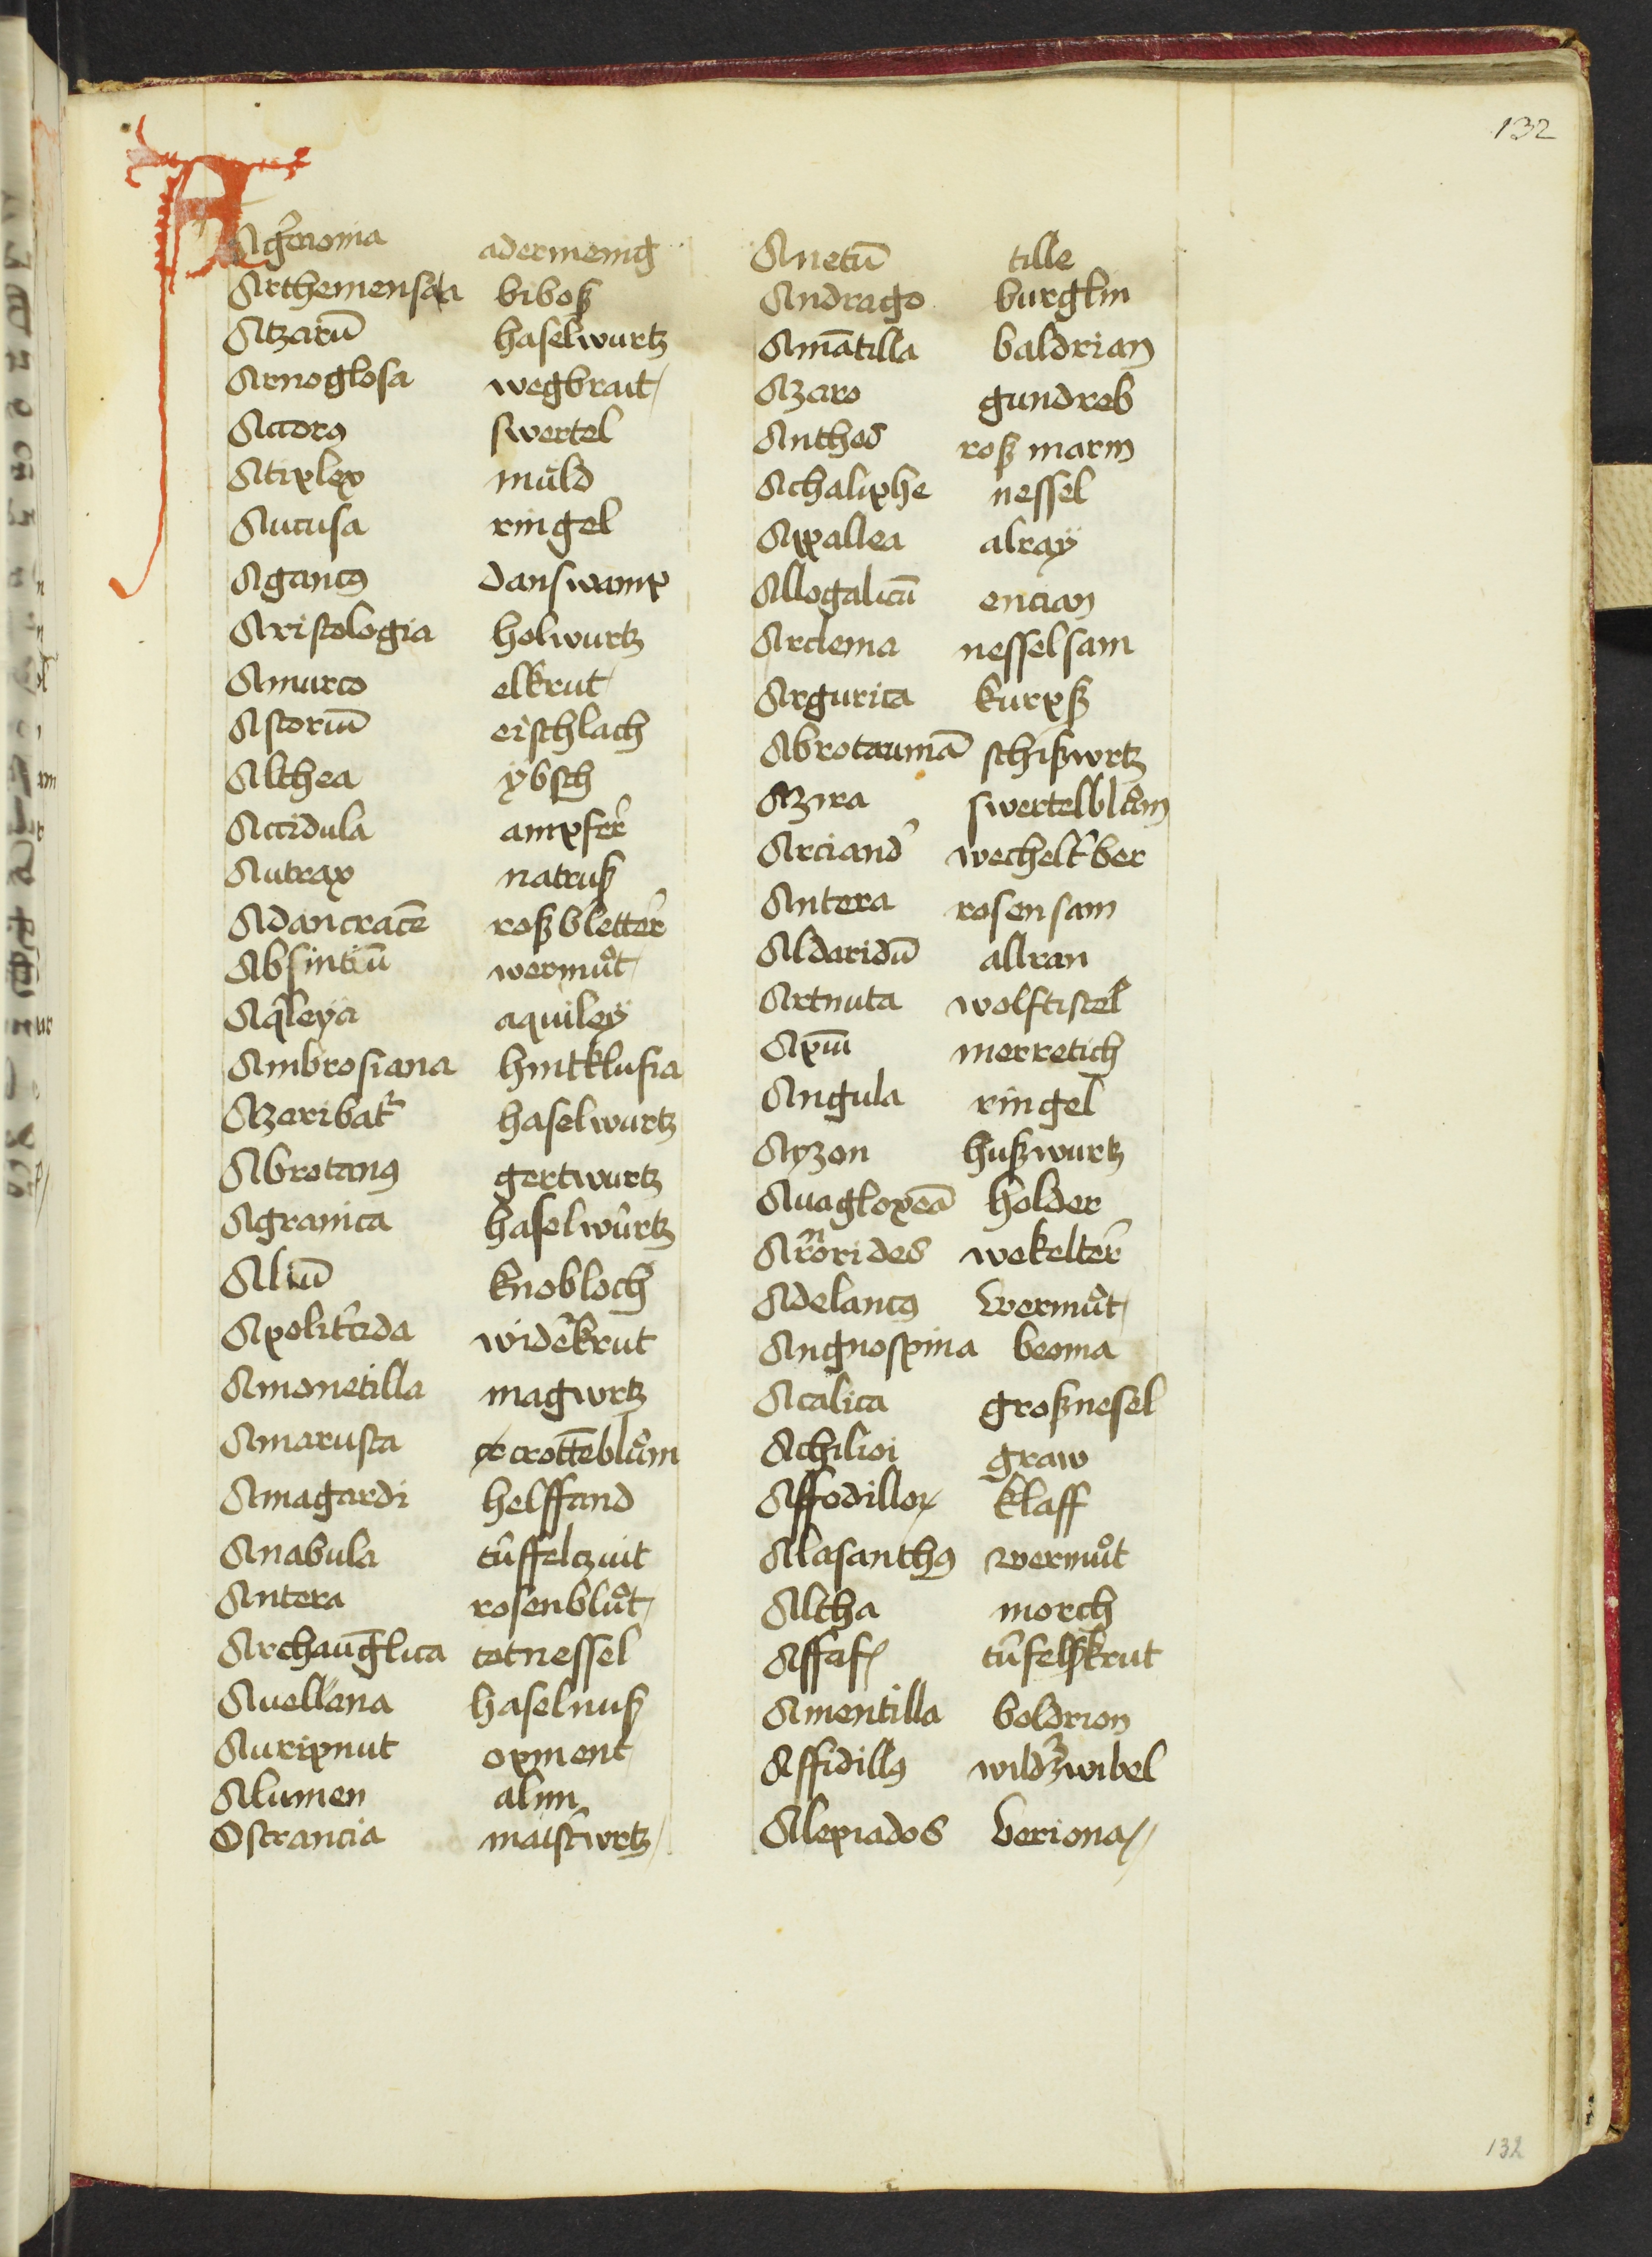 132
A
Ag̉monia adermenig
Arthemensaia biboß
Atzarū haselwurtz
Arnoglosa wegbrait
Acior9 swertel
Atiplex muͦld
Aucusa ringel
Agaric9 danswamp
Aristologia holwurtz
Amarco elkrut
Astoriū eischlach
Althea ybsch
Accidula ampfer̉
Autrax natruß
Adancracē roßbletter̉
Absintiū wermuͦt
Aq̉leya aquiley
Ambrosiana hintklusia
Azeribat̉ haselwurtz
Abrotan9 gertwurtz
Agranica haselwurtz
Aliū knobloch
Apolit̉cida wider̉krut
Amonetilla magwrtz
Amarusta crottēbluͦm
Amagardi helffand
Anabula tuͤffelczuit
Antera rosenbluͦt
Archang̅lica totnessel
Auellana haselnuß
Auripnut opment
Alumen alun
Ostrancia maist̉wrtz
Anetū tille
Andrago burglin
Amātilla baldrian
Azaro gundreb
Anthes roß marin
Achaliphe nessel
Apallea alray
Allogalicū encian
Arclema nesselsam
Argurica kurpß
Abrotaumā schißwrtz
Azira swertelbluͦm
Arciand̉ wechelt̉ber
Antera rosensam
Aldaridū allran
Artnuta wolftistel
Apiū merretich
Angula ringel
Ayzon hußwurtz
Auaglopeā holder
Arnorides wekelter̉
Adelanc9 wermuͦt
Angnospina beoma
Acalica großnesel
Achilioi graw
Affodillor klaff
Alasanth9 wermuͦt
Altha morch
Affaf tuͤfelskrut
Amentilla boldrion
Affidill9 wildzwibel
Alepiados berionax
132